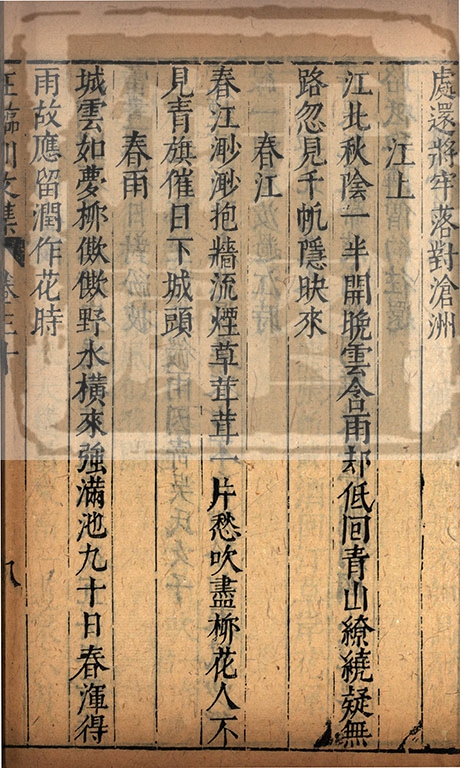 處還將牢落對滄洲
江上
江北秋陰一半開晚雲含雨却低回青山繚繞疑無
路忽見千帆隱映來
春江
春江渺渺抱牆流煙草茸茸一片愁吹盡栁花人不
見青旗催日下城頭
春雨
城雲如夢栁僛僛野水橫來強滿池九十日春渾得
雨故應留潤作花時
王臨川文集 卷三十 八